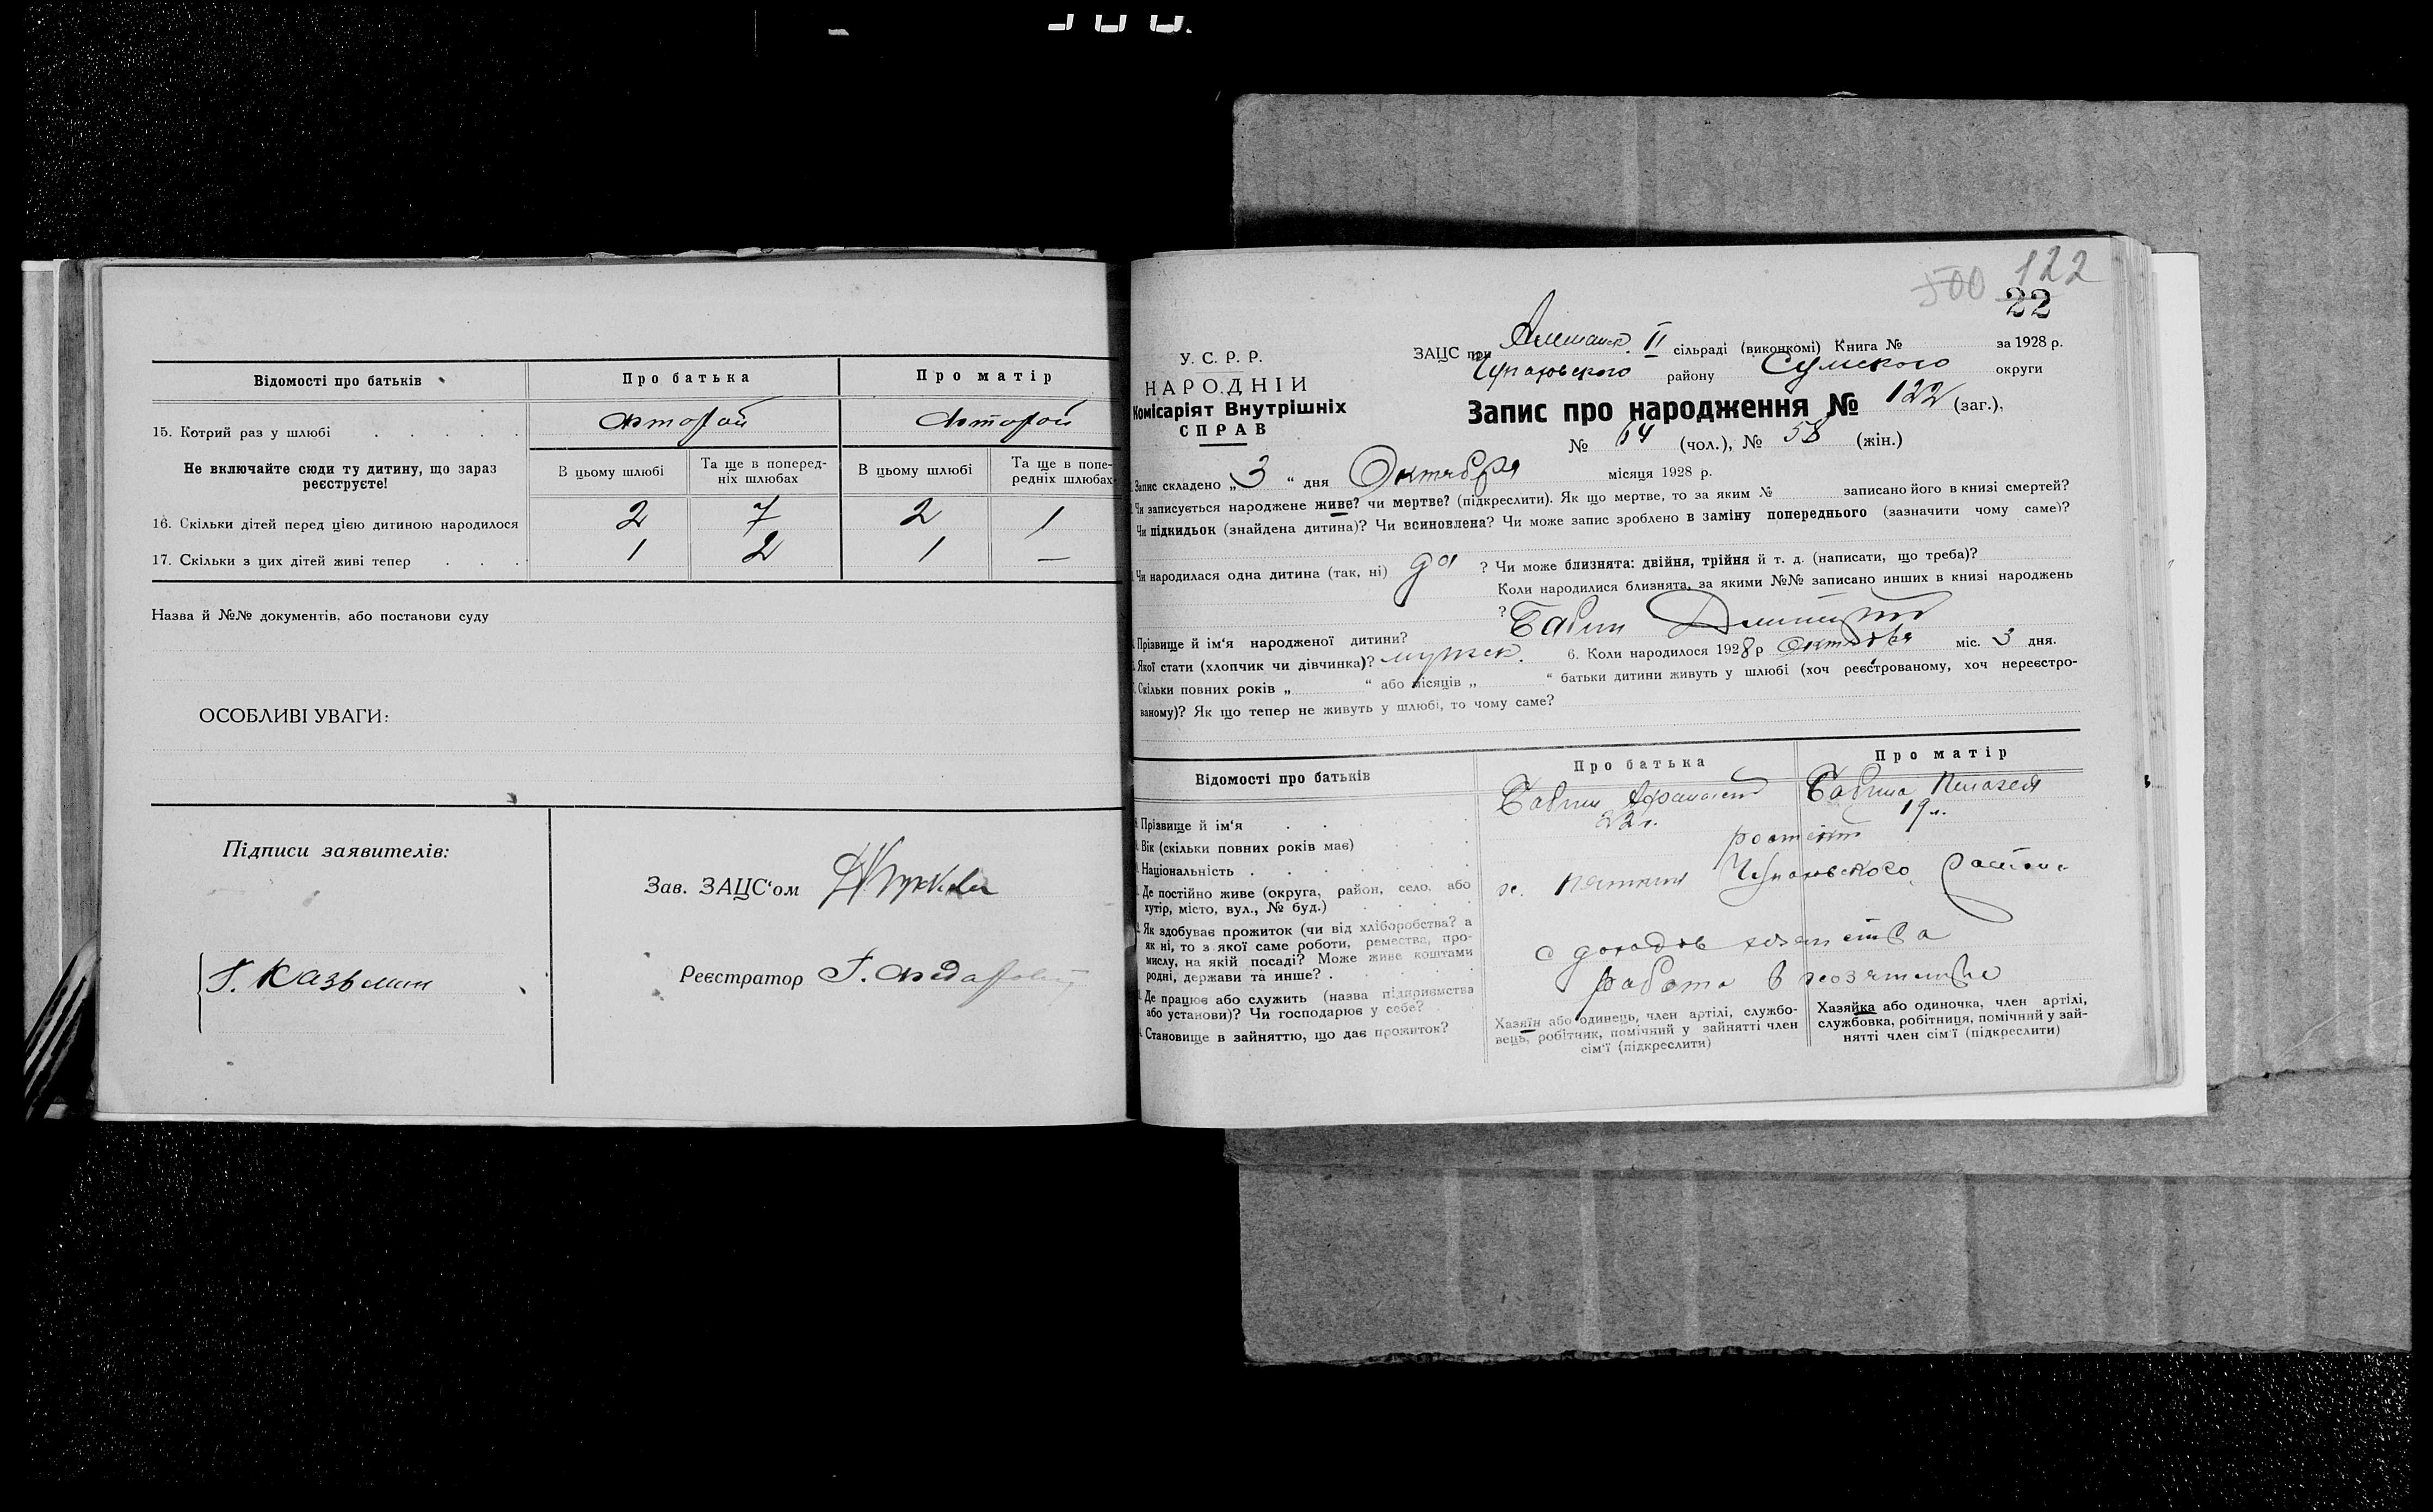 Відомості про батьків
Про батька
Про матір
15. Котрий раз у шлюбі
второй
второй
Не включайте сюди ту дитину, що зараз реєструєте!
В цьому шлюбі
Та ще в поперед-
ніх шлюбах
В цьому шлюбі
Та ще в попе-
редніх шлюбах
16. Скільки дітей перед цією дитиною народилося
2
7
2
1
17. Скільки з цих дітей живі тепер
1
2
1
—
Назва й №№ документів, або постанови суду
ОСОБЛИВІ УВАГИ:
Підписи заявителів:
Г. Казьмин
Зав. ЗАЦС'ом
Реєстратор
500
122
22
У. С. Р. Р.
НАРОДНІЙ
Комісаріят Внутрішніх
СПРАВ
ЗАЦС при
II сільраді (виконкомі) Книга №
за 1928 р.
району Сумского округи
Запис про народження № 122 (заг.),
№ 64 (чол.), № 58 (жін.)
Запис складено „3“ дня Октября місяця 1928 р.
Чи записується народжене живе? чи мертве? (підкреслити). Як що мертве, то за яким № записано його в книзі смертей?
Чи підкидьок (знайдена дитина)? Чи всиновлена? Чи може запис зроблено в заміну попереднього (зазначити чому саме)?
Чи народилася одна дитина (так, ні) да ? Чи може близнята: двійня, трійня й т. д. (написати, що треба)?
Коли народилися близнята, за якими №№ записано инших в книзі народжень
?
Прізвище й ім'я народженої дитини? Бабин Димитрий
Якої стати (хлопчик чи дівчинка)? мужск. 6. Коли народилося 1928 р Октября міс. 3 дня.
Скільки повних років „ “ або місяців „ “ батьки дитини живуть у шлюбі (хоч реєстрованому, хоч нереєстро-
ваному)? Як що тепер не живуть у шлюбі, то чому саме?
Відомості про батьків
Про батька
Про матір
Прізвище й ім'я
Бабин Афанасий
Бабина Пелагея
Вік (скільки повних років має)
22 г.
19 л.
Національність
Де постійно живе (округа, район, село, або
хутір, місто, вул., № буд.)
района
Як здобуває прожиток (чи від хліборобства? а
як ні, то з якої саме роботи, ремества, про-
мислу, на якій посаді? Може живе коштами
родні, держави та инше?
с доходов хозяйства
Де працює або служить (назва підприємства
або установи)? Чи господарює у себе?
работа в хозяйстве
Становище в зайняттю, що дає прожиток?
Хазяїн або одинець, член артілі, службо-
вець, робітник, помічний у зайнятті член
сім'ї (підкреслити)
Хазяйка або одиночка, член артілі,
службовка, робітниця, помічний у зай-
нятті член сім'ї (підкреслити)